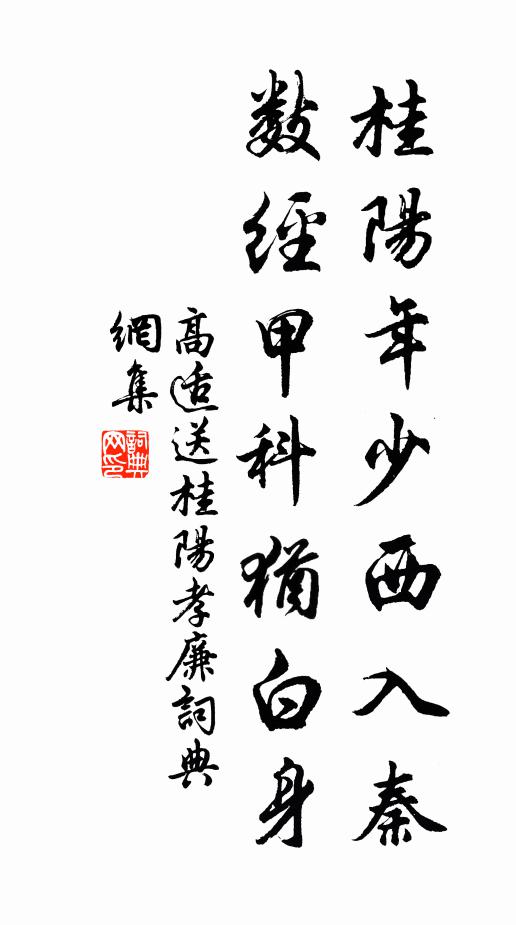 桂陽年少西入秦
數經甲科猶白身
高适送桂陽孝廉詞典
網集
詞典
网印